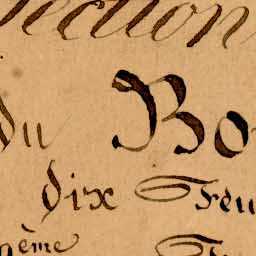 Section
du Bo
dix Feu
ème